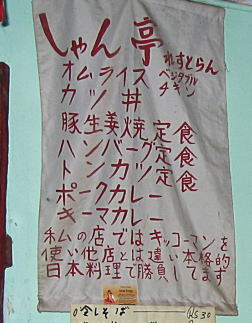 しゃん亭 れすとらん
オムライス ベジタブル
カツ丼 チキン
豚生姜焼定食
ハンバーグ定食
トンカツ定食
ポークカレー
キーマカレー
私の店ではキッコーマンを
使い他店とは違い本格的
日本料理で勝負してます
冷しそば Rs 30